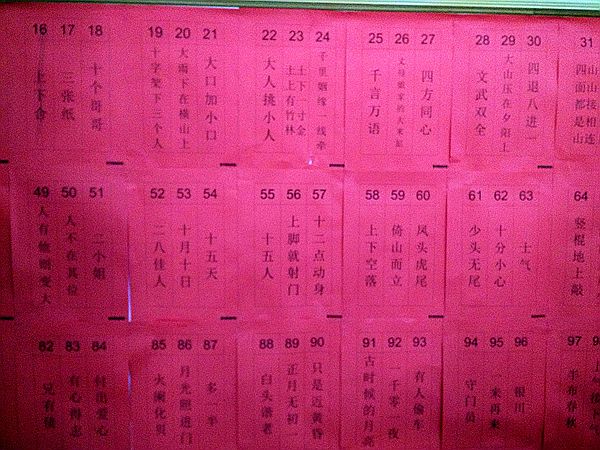 16 上下
17 三张纸
18 十个哥哥
19 十字架下三个人
20 大雨下在横山上
21 大口加小口
22 大人挑小人
23 土下一寸金
土上有竹林
24 千里姻缘 线牵
25 千言万语
26
27 四方同心
28 文武双全
29 大山压在夕阳上
30 四退八进一
31 山山接相连
四面都是山
49 人有他则变大
50 人不在其位
51 二小姐
52 二八佳人
53 十月十日
54 十五天
55 十五人
56 上脚就射门
57 十二点动身
58 上下空落
59 倚山而立
60 凤头虎尾
61 少头无尾
62 十分小心
63 士气
64 竖棍地上敲
82
83 有心得志
84 付出爱心
85
86 月光照进门
87 多一半
88 白头谐老
89 正月无初一
90 只是近黄昏
91 古时候的月亮
92 一千零一夜
93 有人偷车
94 守门员
95 一来再来
96 银川
97 春秋